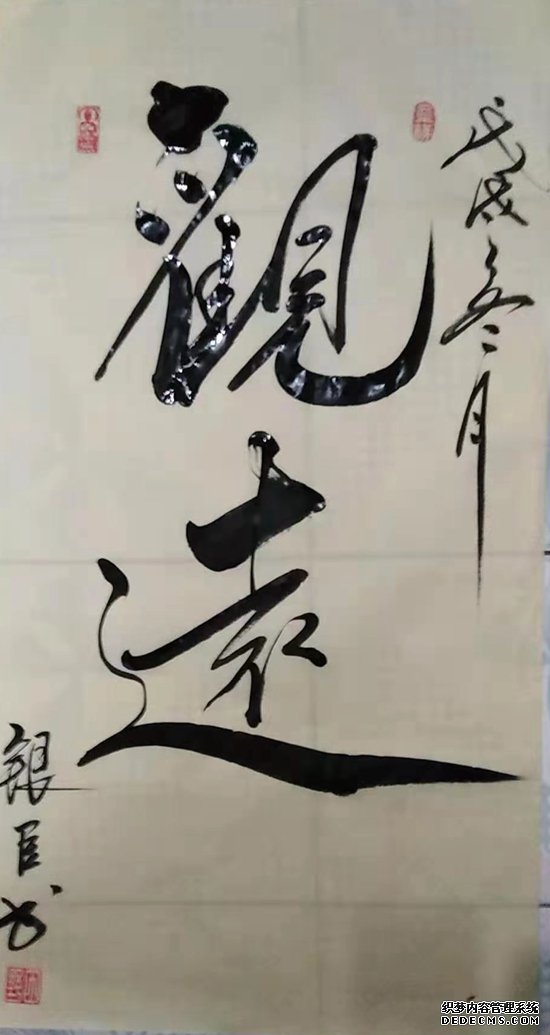 戊戌冬月
觀遠
銀臣书
织梦内容管理系统
DEDECMS.COM